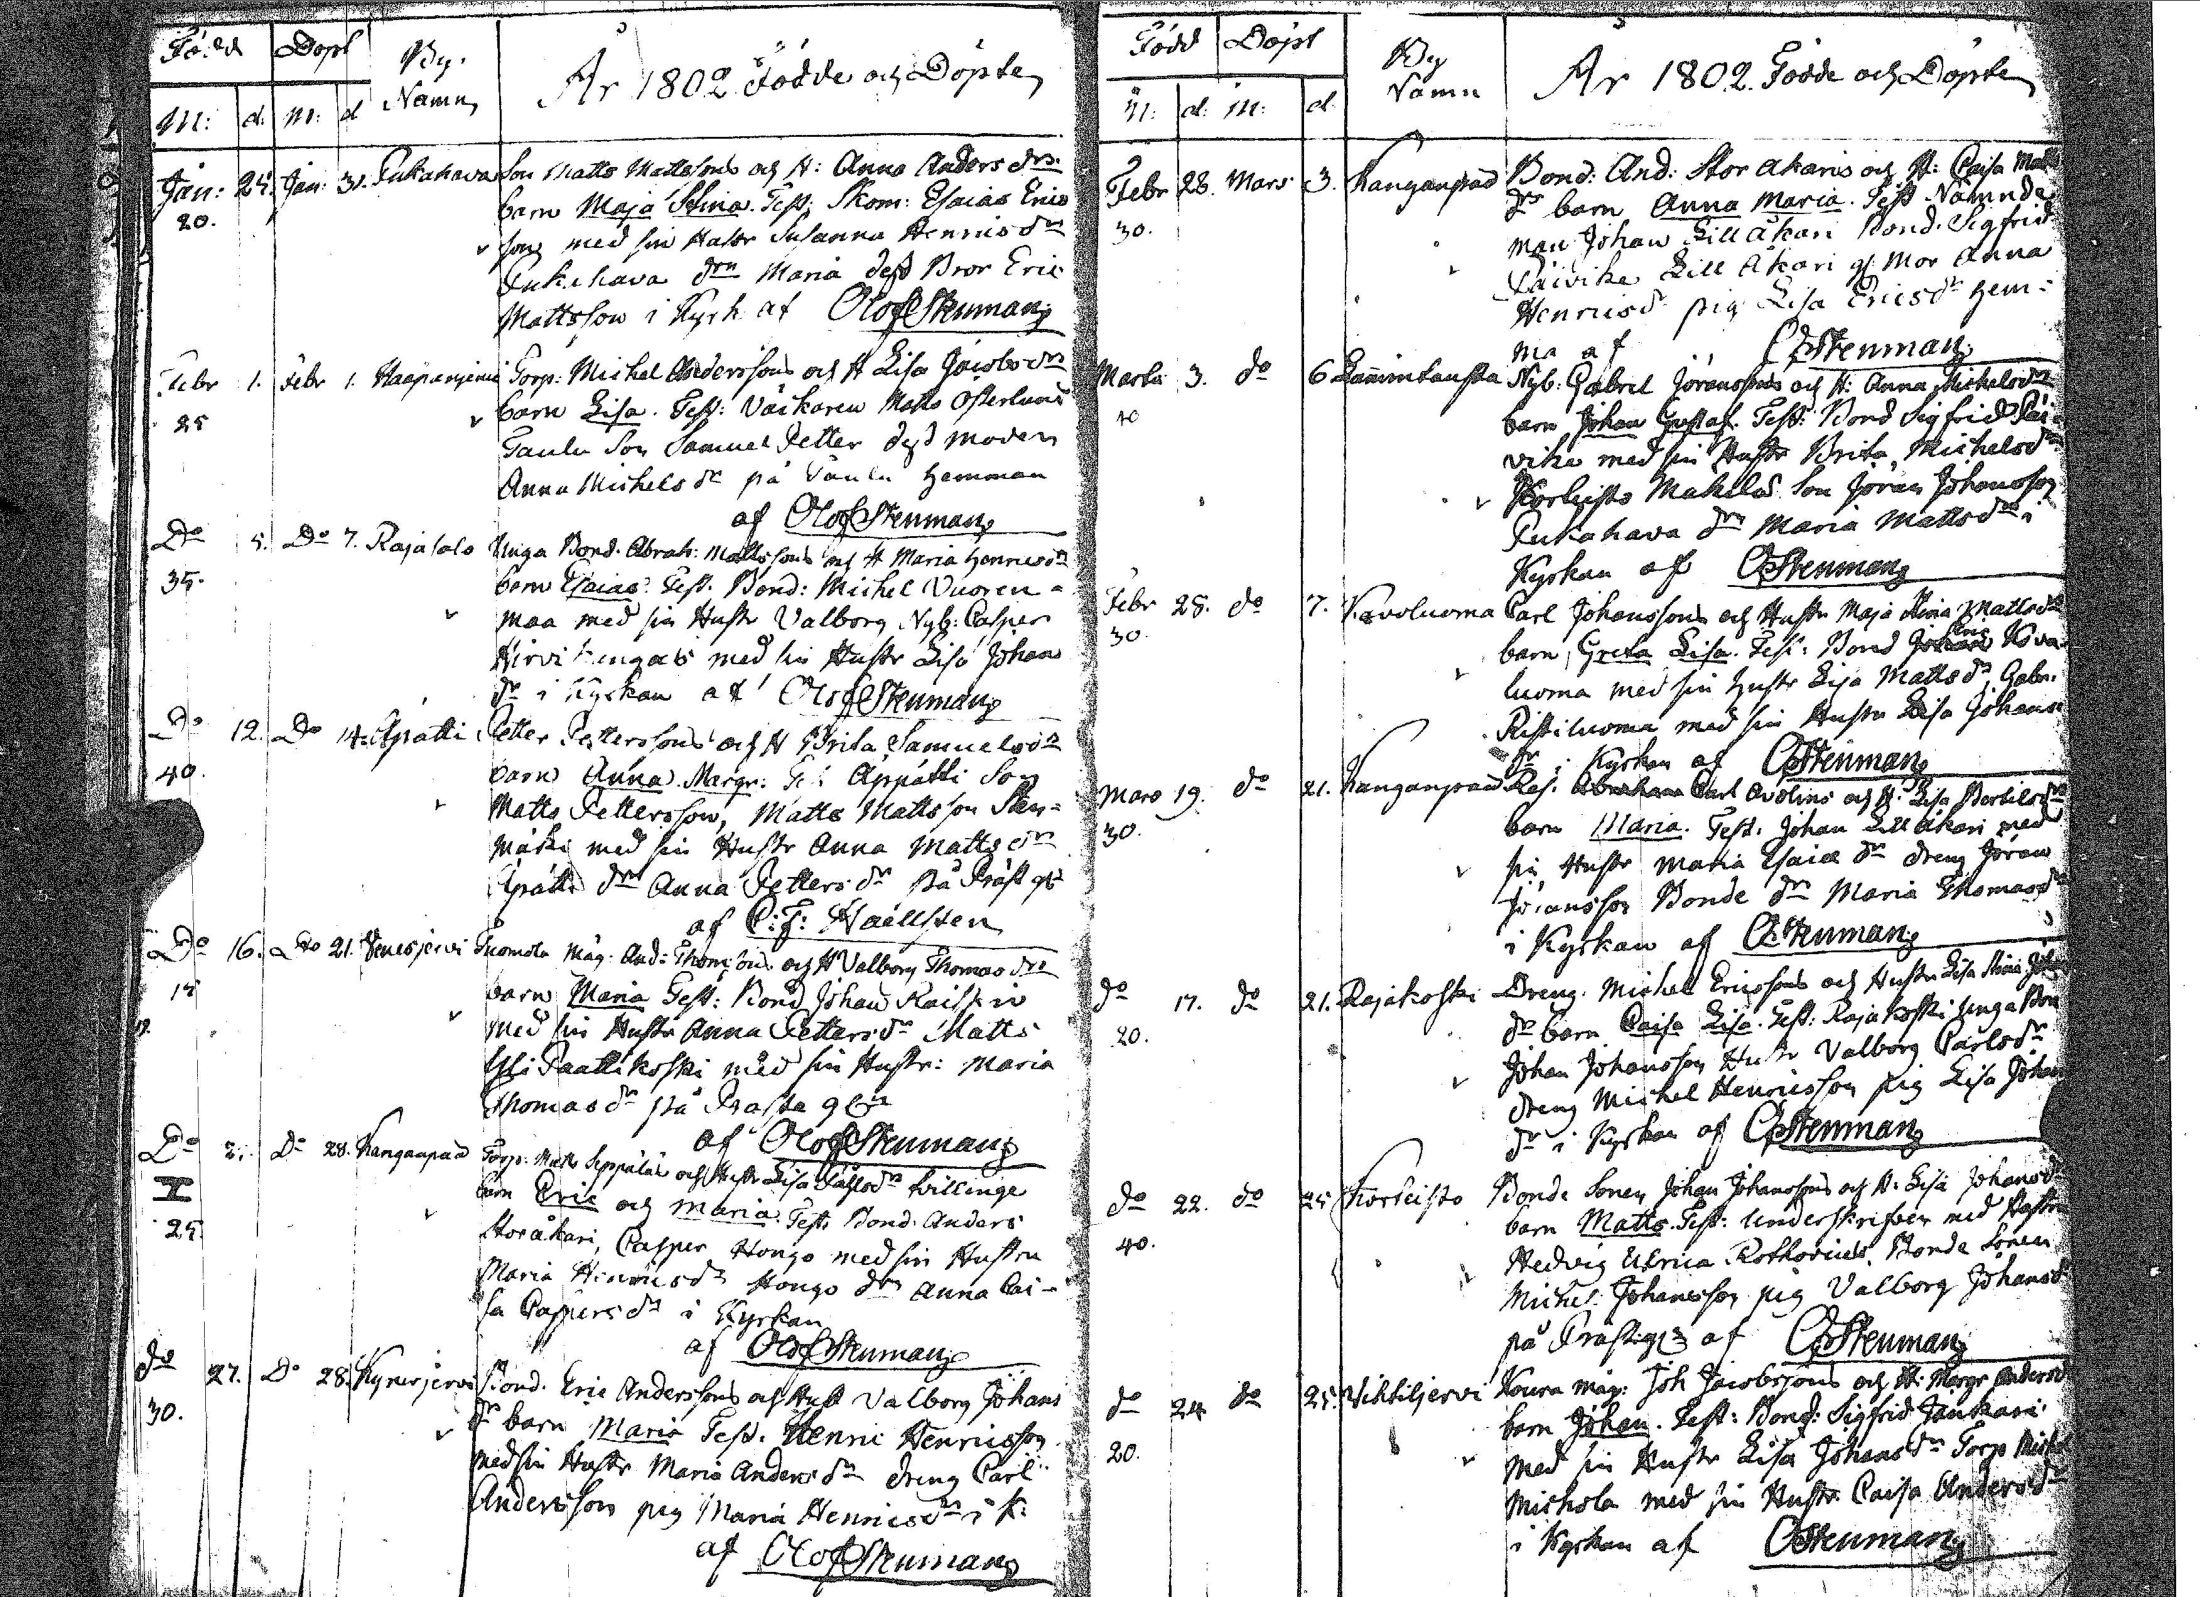 Född Döpt By Namn År 1802 Födde och Döpte
M: d: M: d
Jan: 24. Jan: 31. Pukahava Son Matts Mattssons och H: Anna Anders dr
20. barn Maja Stina. Test: Skom: Esaias Erics
son med sin Hustr Susanna Henrics dr
Pukahava drn Maria dess Bror Eric
Mattsson i Kyrk af Olof Stenman
Febr 1. Febr 1. Haapanjervi Torp: Michel Anderssons och H Lisa Jacobs dr
25 barn Lisa. Test: Matts Österlund
Taulu Son Samuel Petter dess moder
Anna Michels dr på Taulu hemman
af Olof Stenman
Do 5. Do 7. Rajasalo Unga Bond. Abrah: Mattssons och H Maria Henricsdr
35. barn Esaias. Test. Bond: Michel Vuoren-
maa med sin Hustr Valborg Nyb: Casper
Hirvikangas med sin Hustr Lisa Johans
dr i Kyrkan af Olof Stenman
Do 12. Do 14. Äpätti Petter Petterssons och H Brita Samuelsdr
40. barn Anna Margr: Test Äppätti Son
Matts Pettersson, Matts Mattsson Sten-
mäki med sin Hustr Anna Matts dr
Äpätti drn Anna Petters dr på Präst
af C: F: Haellsten
Do 16. Do 21. Venesjervi Tuomola Måg. And: Thomssons och H Valborg Thomas dr
15 barn Maria Test: Bond Johan
med sin Hustr Anna Petters dr Matts
Yli Paattikoski med sin Hustr: Maria
Thomas dr på Prästa
af Olof Stenman
Do 21. Do 28. Kanganpää Torp. Matts Seppäläs och Hustr Lisa dr tvillinge
barn Eric och Maria. Test. Bond. Anders
25 Storåkari, Casper Hongo med sin Hustru
Maria Henricsdr Hongo drn Anna Cai-
sa Caspers dr i Kyrkan
af Olof Stenman
do 27. Do 28. Kynerjervi Bond. Eric Anderssons och Hust Valborg Johans
30. dr barn Maria Test. Henric Henricsson
med sin Hustr Maria Anders dr dreng Carl
Andersson pig Maria Henricsdr i K:
af Olof Stenman
Född Döpt By Namn År 1802. Födde och Döpte
M: d: M: d.
Febr 28. Mars 3. Kanganpää Bond: And: Storåkaris och H: Caisa Matts
30. dr barn Anna Maria. Test Nämnde
man Johan Lill Åkari Bond. Sigfrid
Päivike Lill Åkari g: Mor Anna
Henricsdr pig Lisa Ericsdr hem-
ma af OStenman
Marti 3. do 6 Lamminkausta Nyb: Gabriel Jöranssons och H: Anna Michelsdr
40 barn Johan Gustaf. Test: Bond Sigfrid Päi-
vike med sin Hustr Brita Michelsdr
Korkeisto Makelas Son Jöran Johansson
Pukahava drn Maria Mattsdr i
Kyrkan af OStenman
Febr 28. do 7. Kavoluoma Carl Johanssons och Hustr Maja Stina Mattsdr
30. barn Greta Lisa. Test: Bond Eric Kova-
luoma med sin Hustr Lisa Matts dr, Gabr.
Ristiluoma med sin Hustr Lisa Johans
dr i Kyrkan af OStenman
Mars 19. do 21. Kanganpää Carl Avolins och H: Lisa Bertils dr
30. barn Maria. Test. Johan Lill Åkari med
sin Hustr Maria Esaiæ dr dreng Jöran
Jöransson Bonde drn Maria Thomasdr
i Kyrkan af OStenman
do 17. do 21. Rajakoski Dreng. Michel Ericssons och Hustr Lisa Stina Johans
20. dr barn Caisa Lisa. Test: Rajakoski Unga Bon
Johan Johansson Hustr Valborg Carlsdr
dreng Michel Henricsson pig Lisa Johans
dr i Kyrkan af OStenman
do 22. do 25 Korkeisto Bonde Sonen Johan Johanssons och H: Lisa Johansd
40. barn Matts. Test: Underskrifven med Hustru
Hedvig Ulrica Rothovius, Bonde Sonen
Michel Johansson pig Valborg Johansd
på Prästg af OStenman
do 24 do 25. Vihtiljervi Koura måg: Joh Jacobssons och H: Margr Andersd
20. barn Johan. Test: Bond: Sigfrid Jankari
med sin Hustr Lisa Johans dr Torp Michel
Mishola med sin Hustr Caisa Anders dr
i Kyrkan af OStenman